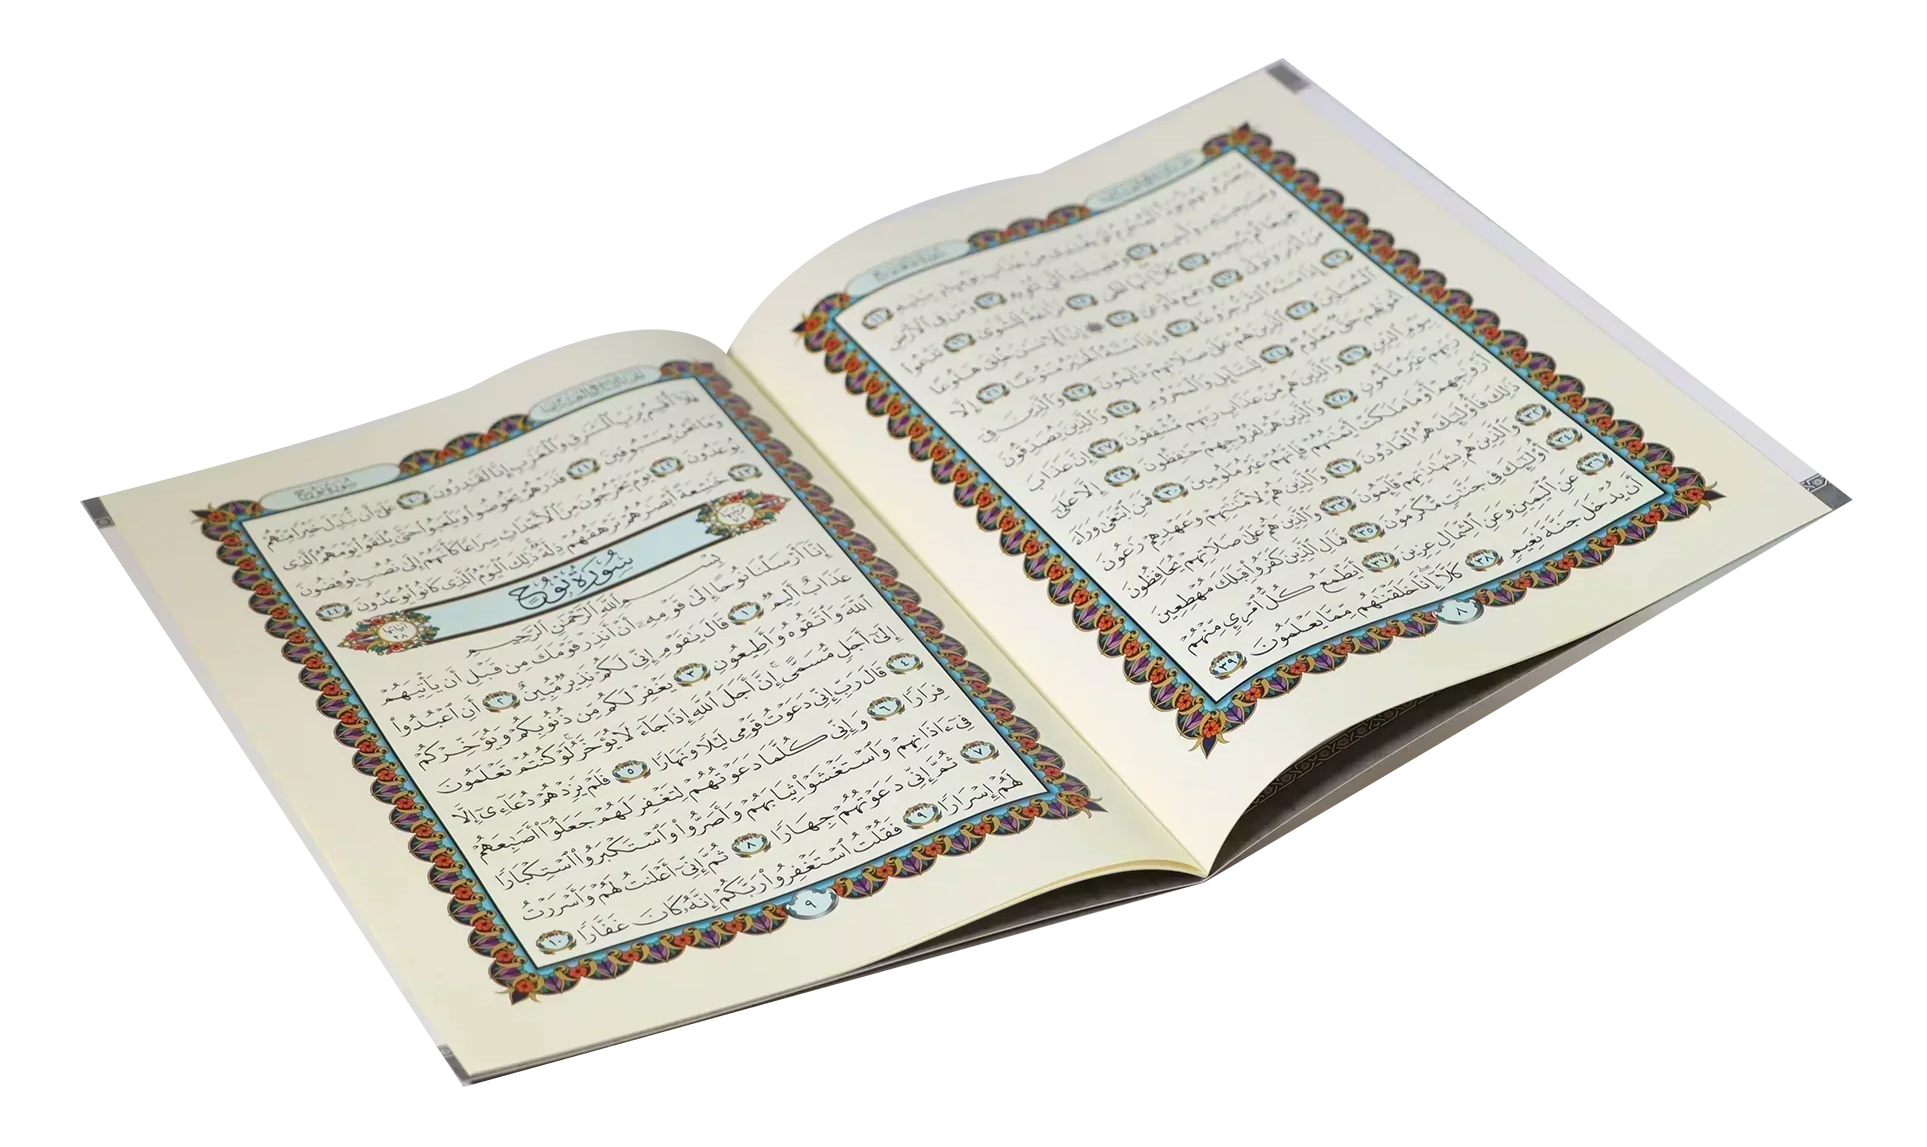 يُبَصَّرُونَهُمْ يَوَدُّ ٱلْمُجْرِمُ لَوْ يَفْتَدِى مِنْ عَذَابِ يَوْمِئِذٍۭ بِبَنِيهِ ١١
وَصَٰحِبَتِهِۦ وَأَخِيهِ ١٢ وَفَصِيلَتِهِ ٱلَّتِى تُـْٔوِيهِ ١٣ وَمَن فِى ٱلْأَرْضِ
جَمِيعًا ثُمَّ يُنجِيهِ ١٤ كَلَّآ إِنَّهَا لَظَىٰ ١٥ نَزَّاعَةً لِّلشَّوَىٰ ١٦ تَدْعُوا۟
مَنْ أَدْبَرَ وَتَوَلَّىٰ ١٧ وَجَمَعَ فَأَوْعَىٰٓ ١٨ ۞ إِنَّ ٱلْإِنسَٰنَ خُلِقَ هَلُوعًا
١٩ إِذَا مَسَّهُ ٱلشَّرُّ جَزُوعًا ٢٠ وَإِذَا مَسَّهُ ٱلْخَيْرُ مَنُوعًا ٢١ إِلَّا
ٱلْمُصَلِّينَ ٢٢ ٱلَّذِينَ هُمْ عَلَىٰ صَلَاتِهِمْ دَآئِمُونَ ٢٣ وَٱلَّذِينَ فِىٓ
أَمْوَٰلِهِمْ حَقٌّ مَّعْلُومٌ ٢٤ لِّلسَّآئِلِ وَٱلْمَحْرُومِ ٢٥ وَٱلَّذِينَ يُصَدِّقُونَ
بِيَوْمِ ٱلدِّينِ ٢٦ وَٱلَّذِينَ هُم مِّنْ عَذَابِ رَبِّهِم مُّشْفِقُونَ ٢٧ إِنَّ عَذَابَ
رَبِّهِمْ غَيْرُ مَأْمُونٍ ٢٨ وَٱلَّذِينَ هُمْ لِفُرُوجِهِمْ حَٰفِظُونَ ٢٩ إِلَّا عَلَىٰٓ
أَزْوَٰجِهِمْ أَوْ مَا مَلَكَتْ أَيْمَٰنُهُمْ فَإِنَّهُمْ غَيْرُ مَلُومِينَ ٣٠ فَمَنِ ٱبْتَغَىٰ وَرَآءَ
ذَٰلِكَ فَأُو۟لَٰٓئِكَ هُمُ ٱلْعَادُونَ ٣١ وَٱلَّذِينَ هُمْ لِأَمَٰنَٰتِهِمْ وَعَهْدِهِمْ رَٰعُونَ
٣٢ وَٱلَّذِينَ هُم بِشَهَٰدَٰتِهِمْ قَآئِمُونَ ٣٣ وَٱلَّذِينَ هُمْ عَلَىٰ صَلَاتِهِمْ يُحَافِظُونَ
٣٤ أُو۟لَٰٓئِكَ فِى جَنَّٰتٍ مُّكْرَمُونَ ٣٥ فَمَالِ ٱلَّذِينَ كَفَرُوا۟ قِبَلَكَ مُهْطِعِينَ
٣٦ عَنِ ٱلْيَمِينِ وَعَنِ ٱلشِّمَالِ عِزِينَ ٣٧ أَيَطْمَعُ كُلُّ ٱمْرِئٍ مِّنْهُمْ
أَن يُدْخَلَ جَنَّةَ نَعِيمٍ ٣٨ كَلَّآ إِنَّا خَلَقْنَٰهُم مِّمَّا يَعْلَمُونَ ٣٩
٨
سُورَةُ نُوحٍ
فَلَآ أُقْسِمُ بِرَبِّ ٱلْمَشَٰرِقِ وَٱلْمَغَٰرِبِ إِنَّا لَقَٰدِرُونَ ٤٠ عَلَىٰٓ أَن نُّبَدِّلَ خَيْرًا مِّنْهُمْ
وَمَا نَحْنُ بِمَسْبُوقِينَ ٤١ فَذَرْهُمْ يَخُوضُوا۟ وَيَلْعَبُوا۟ حَتَّىٰ يُلَٰقُوا۟ يَوْمَهُمُ ٱلَّذِى
يُوعَدُونَ ٤٢ يَوْمَ يَخْرُجُونَ مِنَ ٱلْأَجْدَاثِ سِرَاعًا كَأَنَّهُمْ إِلَىٰ نُصُبٍ يُوفِضُونَ
٤٣ خَٰشِعَةً أَبْصَٰرُهُمْ تَرْهَقُهُمْ ذِلَّةٌ ذَٰلِكَ ٱلْيَوْمُ ٱلَّذِى كَانُوا۟ يُوعَدُونَ ٤٤
سُورَةُ نُوحٍ
بِسْمِ ٱللَّهِ ٱلرَّحْمَٰنِ ٱلرَّحِيمِ
إِنَّآ أَرْسَلْنَا نُوحًا إِلَىٰ قَوْمِهِۦٓ أَنْ أَنذِرْ قَوْمَكَ مِن قَبْلِ أَن يَأْتِيَهُمْ
عَذَابٌ أَلِيمٌ ١ قَالَ يَٰقَوْمِ إِنِّى لَكُمْ نَذِيرٌ مُّبِينٌ ٢ أَنِ ٱعْبُدُوا۟
ٱللَّهَ وَٱتَّقُوهُ وَأَطِيعُونِ ٣ يَغْفِرْ لَكُم مِّن ذُنُوبِكُمْ وَيُؤَخِّرْكُمْ
إِلَىٰٓ أَجَلٍ مُّسَمًّى إِنَّ أَجَلَ ٱللَّهِ إِذَا جَآءَ لَا يُؤَخَّرُ لَوْ كُنتُمْ تَعْلَمُونَ
٤ قَالَ رَبِّ إِنِّى دَعَوْتُ قَوْمِى لَيْلًا وَنَهَارًا ٥ فَلَمْ يَزِدْهُمْ دُعَآءِىٓ إِلَّا
فِرَارًا ٦ وَإِنِّى كُلَّمَا دَعَوْتُهُمْ لِتَغْفِرَ لَهُمْ جَعَلُوٓا۟ أَصَٰبِعَهُمْ
فِىٓ ءَاذَانِهِمْ وَٱسْتَغْشَوْا۟ ثِيَابَهُمْ وَأَصَرُّوا۟ وَٱسْتَكْبَرُوا۟ ٱسْتِكْبَارًا
٧ ثُمَّ إِنِّى دَعَوْتُهُمْ جِهَارًا ٨ ثُمَّ إِنِّىٓ أَعْلَنتُ لَهُمْ وَأَسْرَرْتُ
لَهُمْ إِسْرَارًا ٩ فَقُلْتُ ٱسْتَغْفِرُوا۟ رَبَّكُمْ إِنَّهُۥ كَانَ غَفَّارًا ١٠
٩